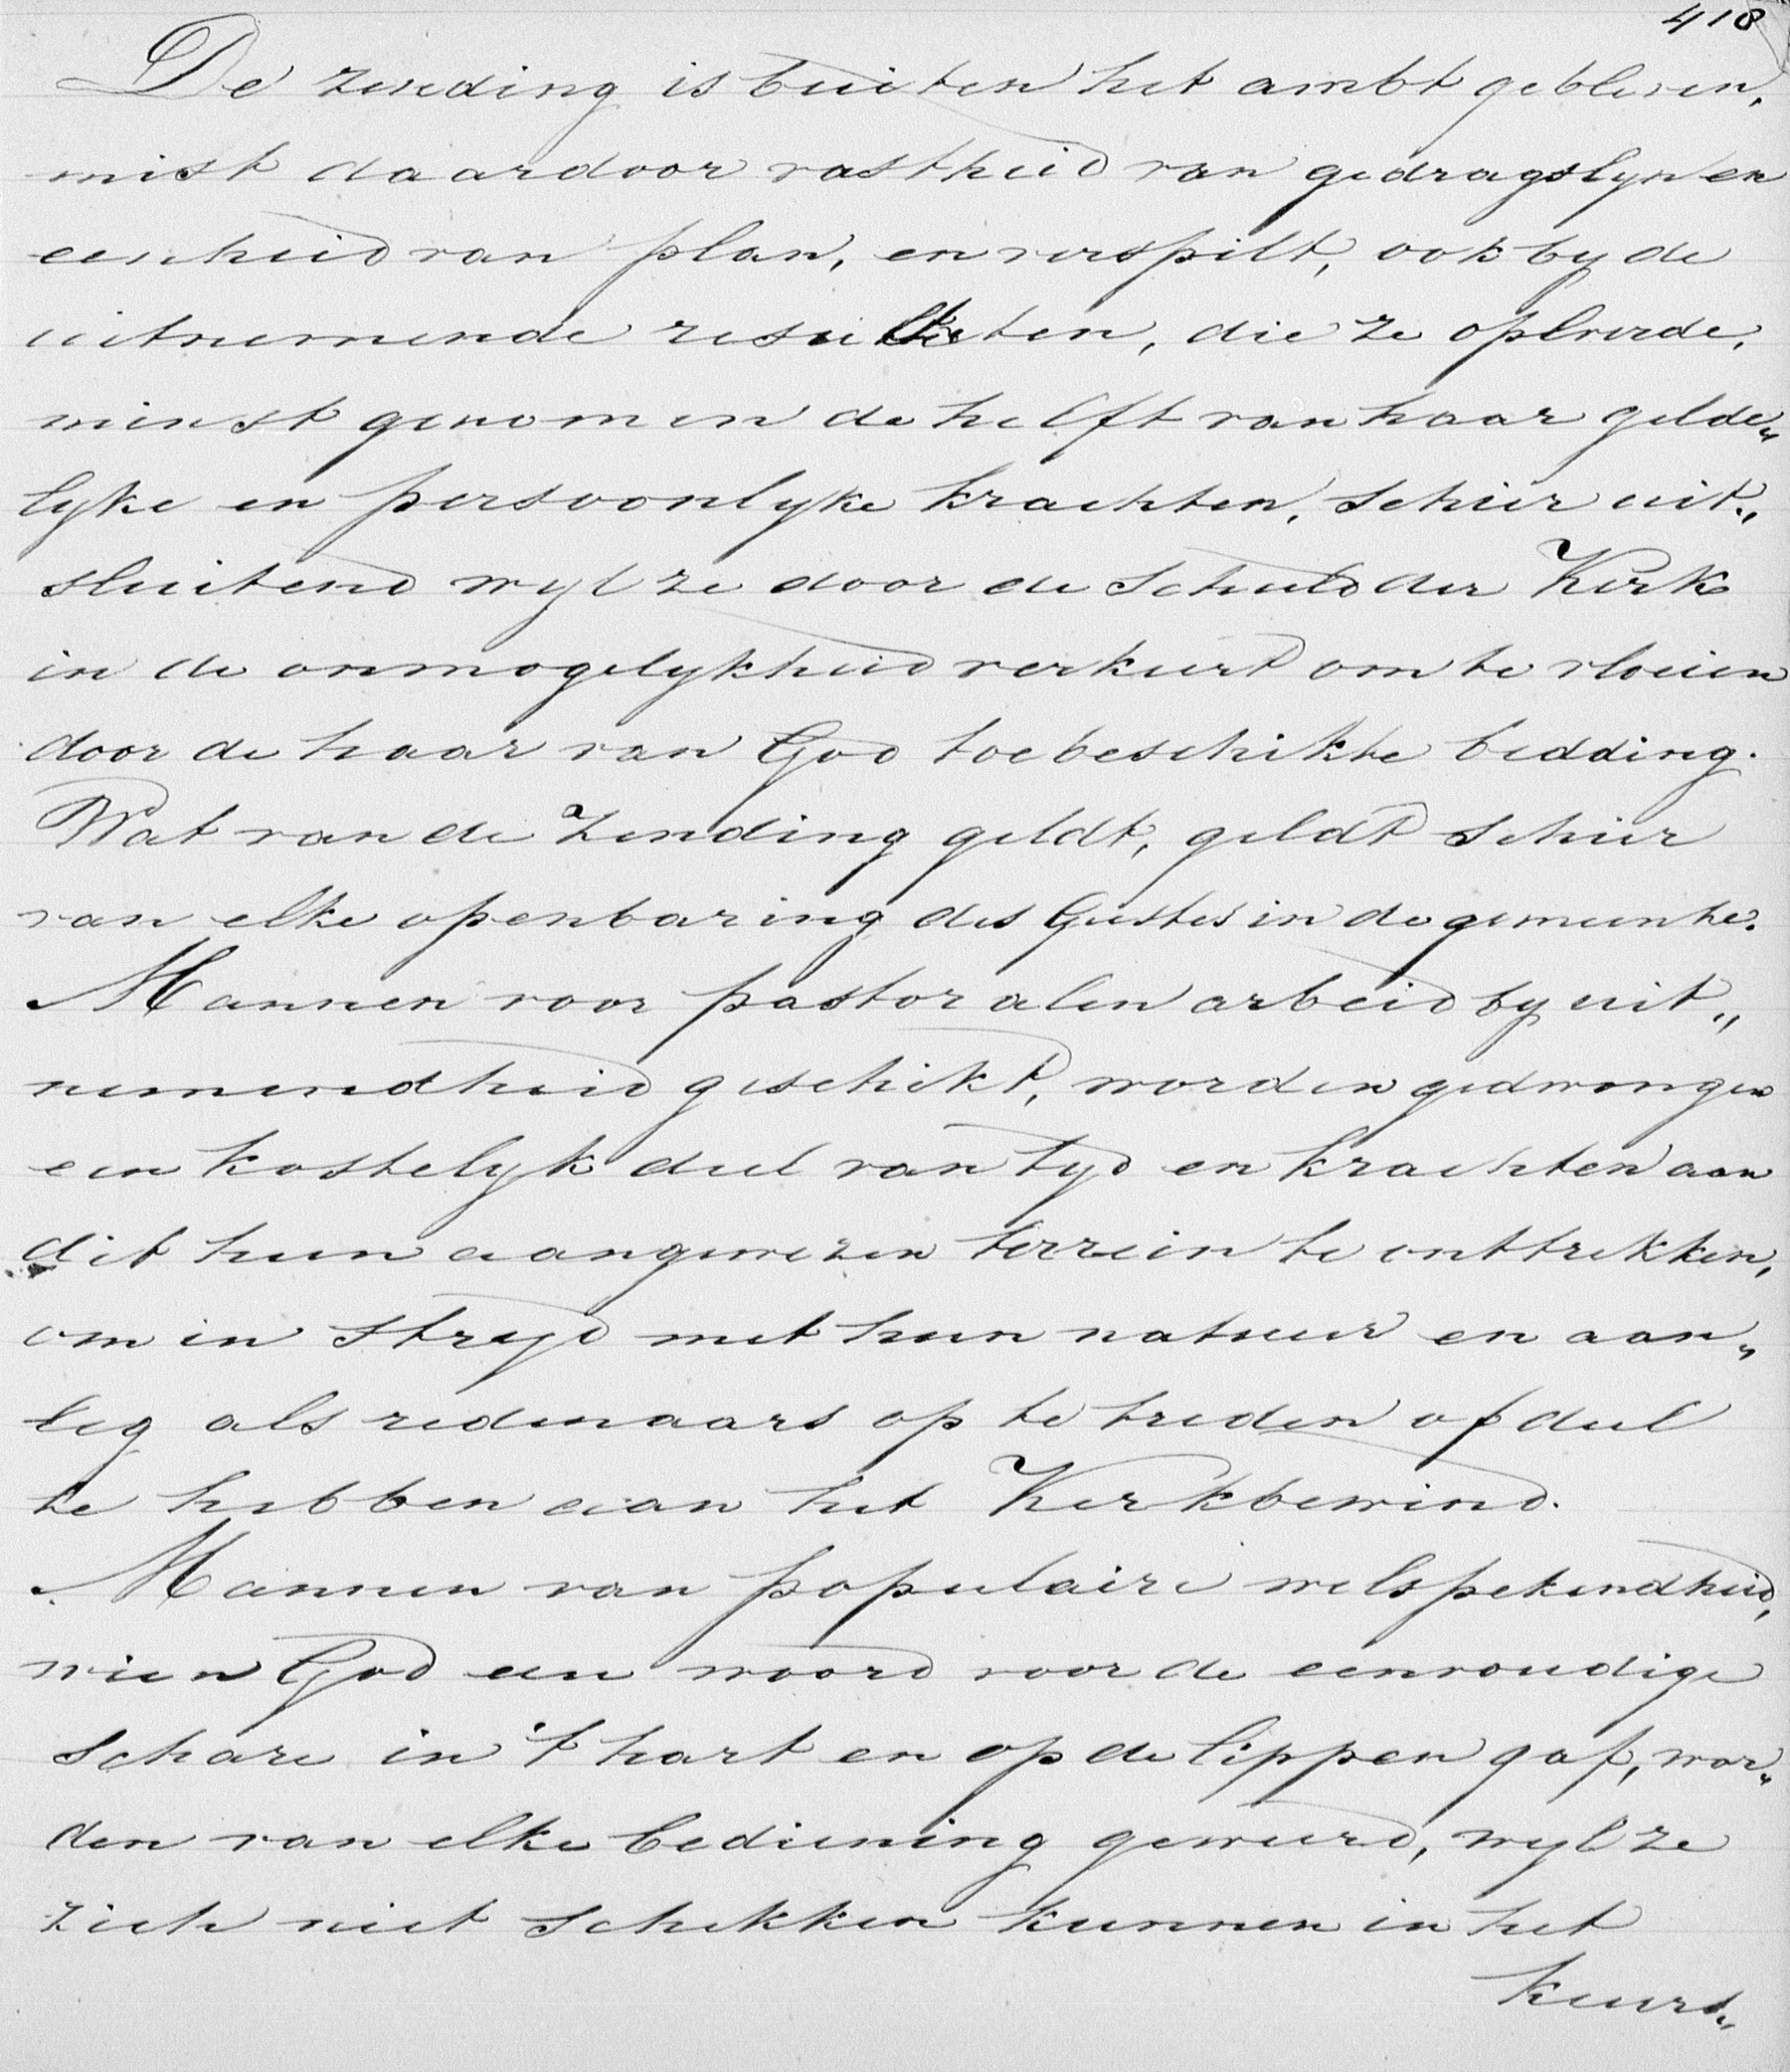 418
De zending is buiten het ambt gebleven,
mist daardoor vastheid van gedragslyn en
eenheid van plan, en verspilt, ook by de
uitnemende resultaten, die ze opleverde,
minst genomen de helft van haar gelde„
lyke en persoonlyke krachten, schier uit„
sluitend wyl ze door de schuld der Kerk
in de onmogelykheid verkeert om te vloeien
door de haar van God toebeschikte bedding.
Wat van de zending geldt, geldt schier
van elke openbaring des Geestes in de gemeente.
Mannen voor pastoralen arbeid by uit„
nemendheid geschikt, worden gedwongen
een kostelyk deel van tyd en krachten aan
dit hun aangewezen terrein te onttrekken,
om in stryd met hun natuur en aan„
leg als redenaars op te treden of deel
te hebben aan het Kerkbewind.
Mannen van populaire welspekendheid,
wien God een woord voor de eenvoudige
schare in 't hart en op de lippen gaf, wor„
den van elke bediening geweerd, wyl ze
zich niet schikken kunnen in het
keurs„